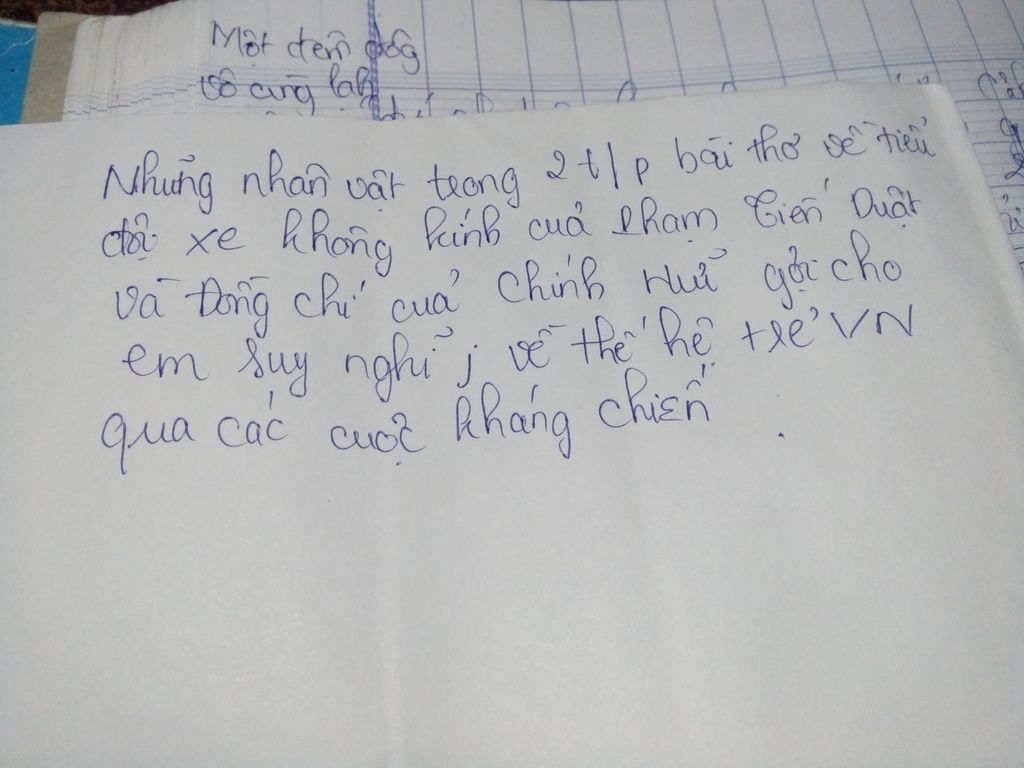 Một đêm đông
vô cùng lạnh
Những nhân vật trong 2 t/p bài thơ về tiểu
đội xe không kính của Phạm Tiến Duật
và Đồng chí của Chính Hữu gợi cho
em suy nghĩ j về thế hệ trẻ VN
qua các cuộc kháng chiến.